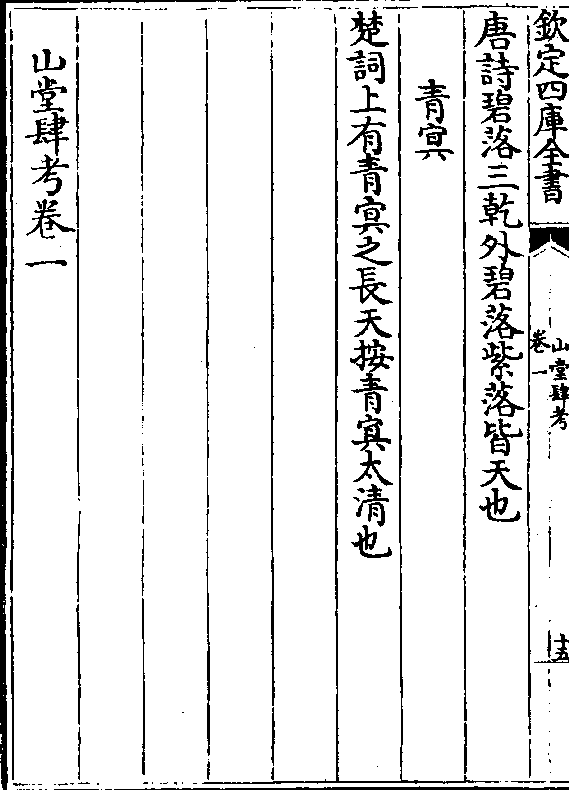 欽定四庫全書
山堂肆考
卷一
十五
唐詩碧落三乾外碧落紫落皆天也
青冥
楚詞上有青冥之長天按青冥太清也
山堂肆考卷一